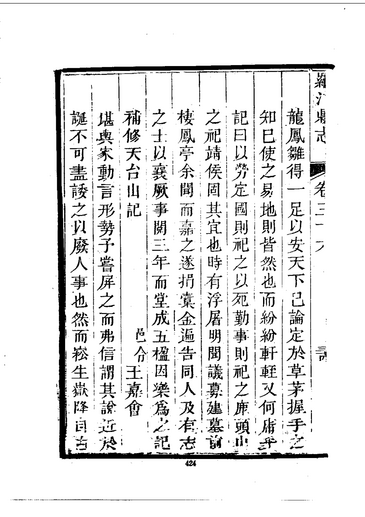 羅江縣志
卷三十六
龍鳳雛得一足以安天下已論定於草茅握手之
知已使之易地則皆然也而紛紛軒輊又何庸乎
記曰以勞定國則祀之以死勤事則祀之鹿頭山
之祀靖侯固其宜也時有浮屠明閬議募建墓前
棲鳳亭余聞而嘉之遂捐橐金遍告同人及有志
之士以襄厥事閱三年而堂成五楹因樂為之記
補修天台山記
邑令王嘉會
堪輿家動言形勢予嘗屏之而弗信謂其說近於
誕不可盡諉之以廢人事也然而崧生嶽降自古
424